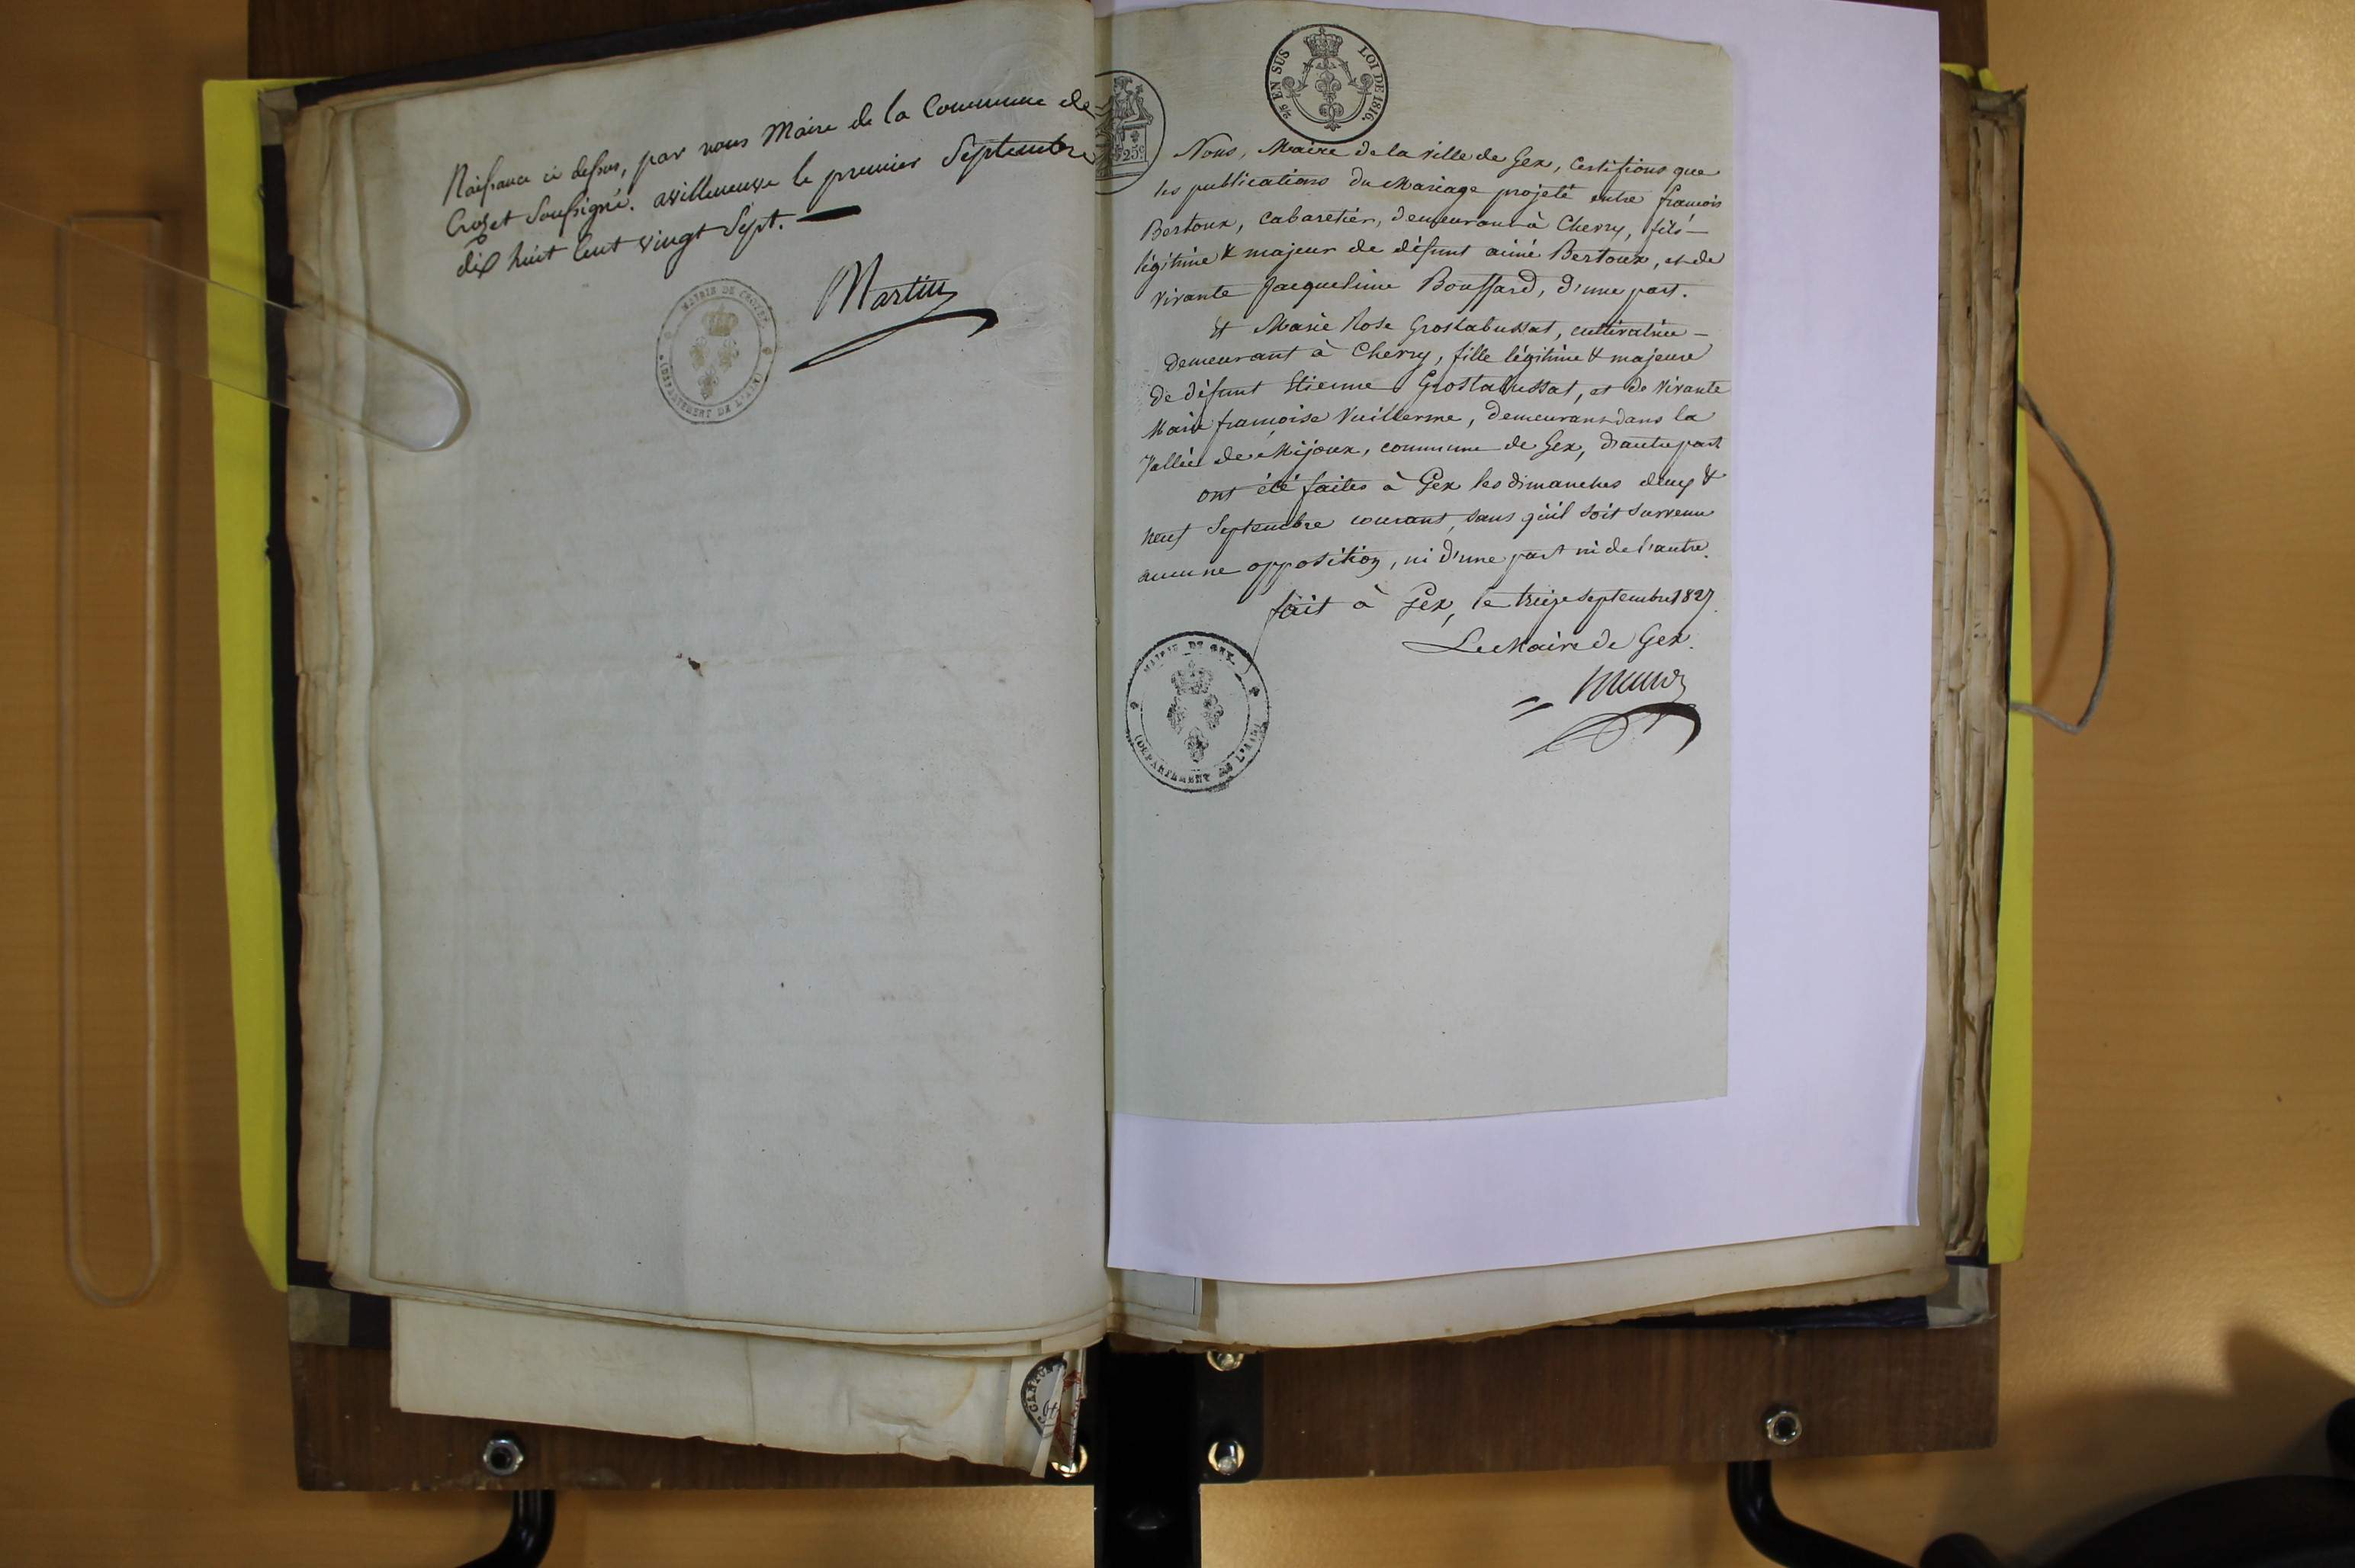 Naissance ci dessus, par nous Maire de la Commune de
Crozet Soussigné. avilleneuve le premier Septembre
dix huit Cent vingt Sept.
Martin
MAIRIE DE CROZET
(DÉPARTEMENT DE L'AIN)
25c
2/5 EN SUS LOI DE 1816.
Nous, Maire de la ville de Gex, Certifions que
les publications du Mariage projeté entre françois
Bertoux, Cabaretier, demeurant à Chevry, fils
légitime & majeur de défunt aimé Bertoux, et de
vivante Jacqueline Boussard, d'une part.
& Marie Rose Grostabussat, cultivatrice
demeurant à Chevry, fille légitime & majeure
de défunt Etienne Grostabussat, et de vivante
Marie françoise Vuillerme, demeurans dans la
Vallée de Mijoux, commune de Gex, d'autre part
ont été faites à Gex les dimanches deux &
neuf Septembre courant, sans qu'il soit survenu
aucune opposition, ni d'une part ni de l'autre.
fait à Gex, le treize septembre 1827.
Le Maire de Gex.
MAIRIE DE GEX.
(DÉPARTEMENT DE L'AIN)
CANTON